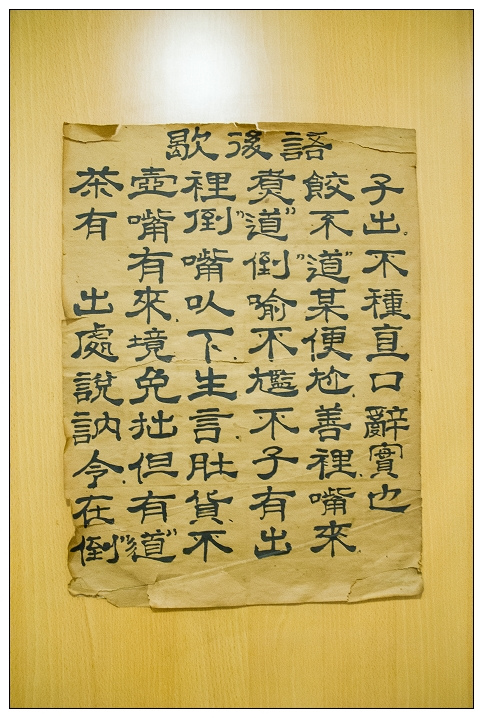 歇後語
茶壺裡煮餃子
有嘴倒"道"不出。
有嘴倒"道"不
出來.以喻某種
處境下不便直
說免生尷尬.口
訥拙言.不善辭
令.但肚子裡.實
在有貨.有嘴也
倒"道"不出來.